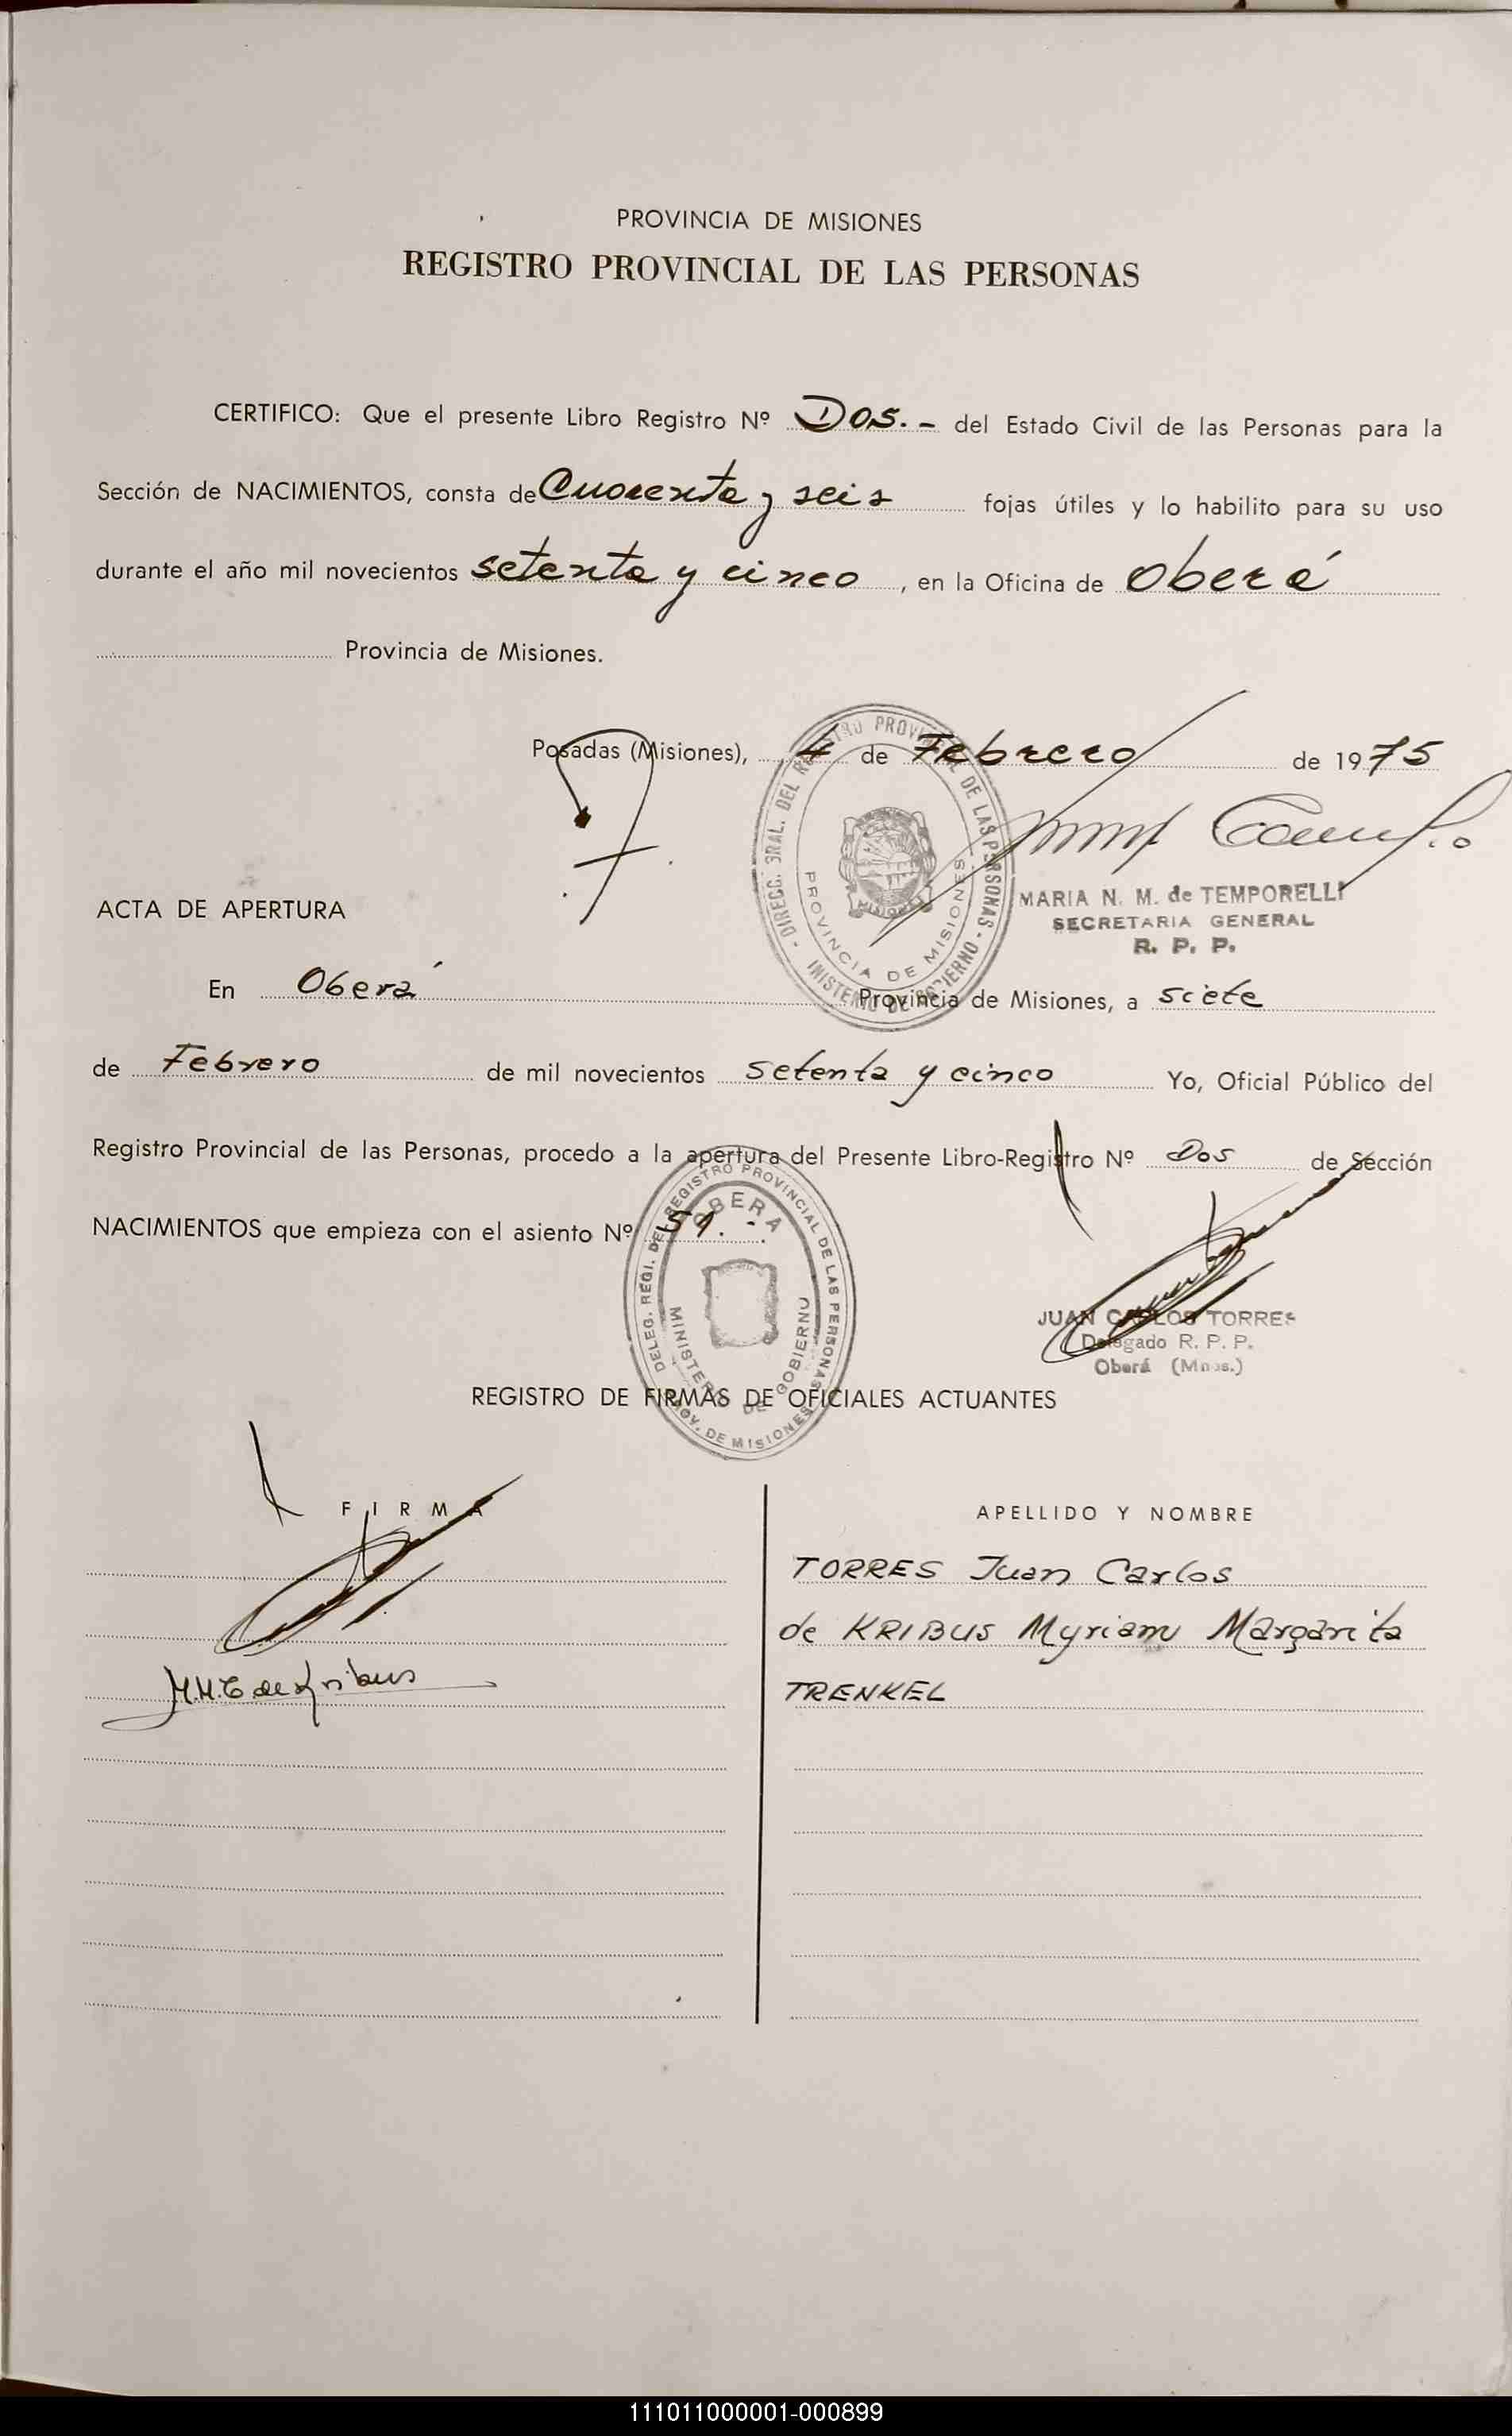 PROVINCIA DE MISIONES
REGISTRO PROVINCIAL DE LAS PERSONAS
CERTIFICO: Que el presente Libro Registro Nº Dos.- del Estado Civil de las Personas para la
Sección de NACIMIENTOS, consta de Cuarenta y seis fojas útiles y lo habilito para su uso
durante el año mil novecientos setenta y cinco, en la Oficina de Oberá
Provincia de Misiones.
Posadas (Misiones), 4 de Febrero de 1975
DIRECC. GRAL. DEL REGISTRO PROVINCIAL DE LAS PERSONAS - MINISTERIO DE GOBIERNO -
PROVINCIA DE MISIONES
MARIA N. M. de TEMPORELLI
SECRETARIA GENERAL
R. P. P.
ACTA DE APERTURA
En Oberá Provincia de Misiones, a siete
de Febrero de mil novecientos setenta y cinco Yo, Oficial Público del
Registro Provincial de las Personas, procedo a la apertura del Presente Libro-Registro Nº Dos de Sección
NACIMIENTOS que empieza con el asiento Nº 51.-
DELEG. REGI. DEL REGISTRO PROVINCIAL DE LAS PERSONAS
OBERA
MINISTERIO DE GOBIERNO
PROV. DE MISIONES
JUAN CARLOS TORRES
Delegado R. P. P.
Oberá (Mnes.)
REGISTRO DE FIRMAS DE OFICIALES ACTUANTES
FIRMA
APELLIDO Y NOMBRE
TORRES Juan Carlos
de KRIBUS Myriam Margarita
M.M.T. de Kribus
TRENKEL
111011000001-000899